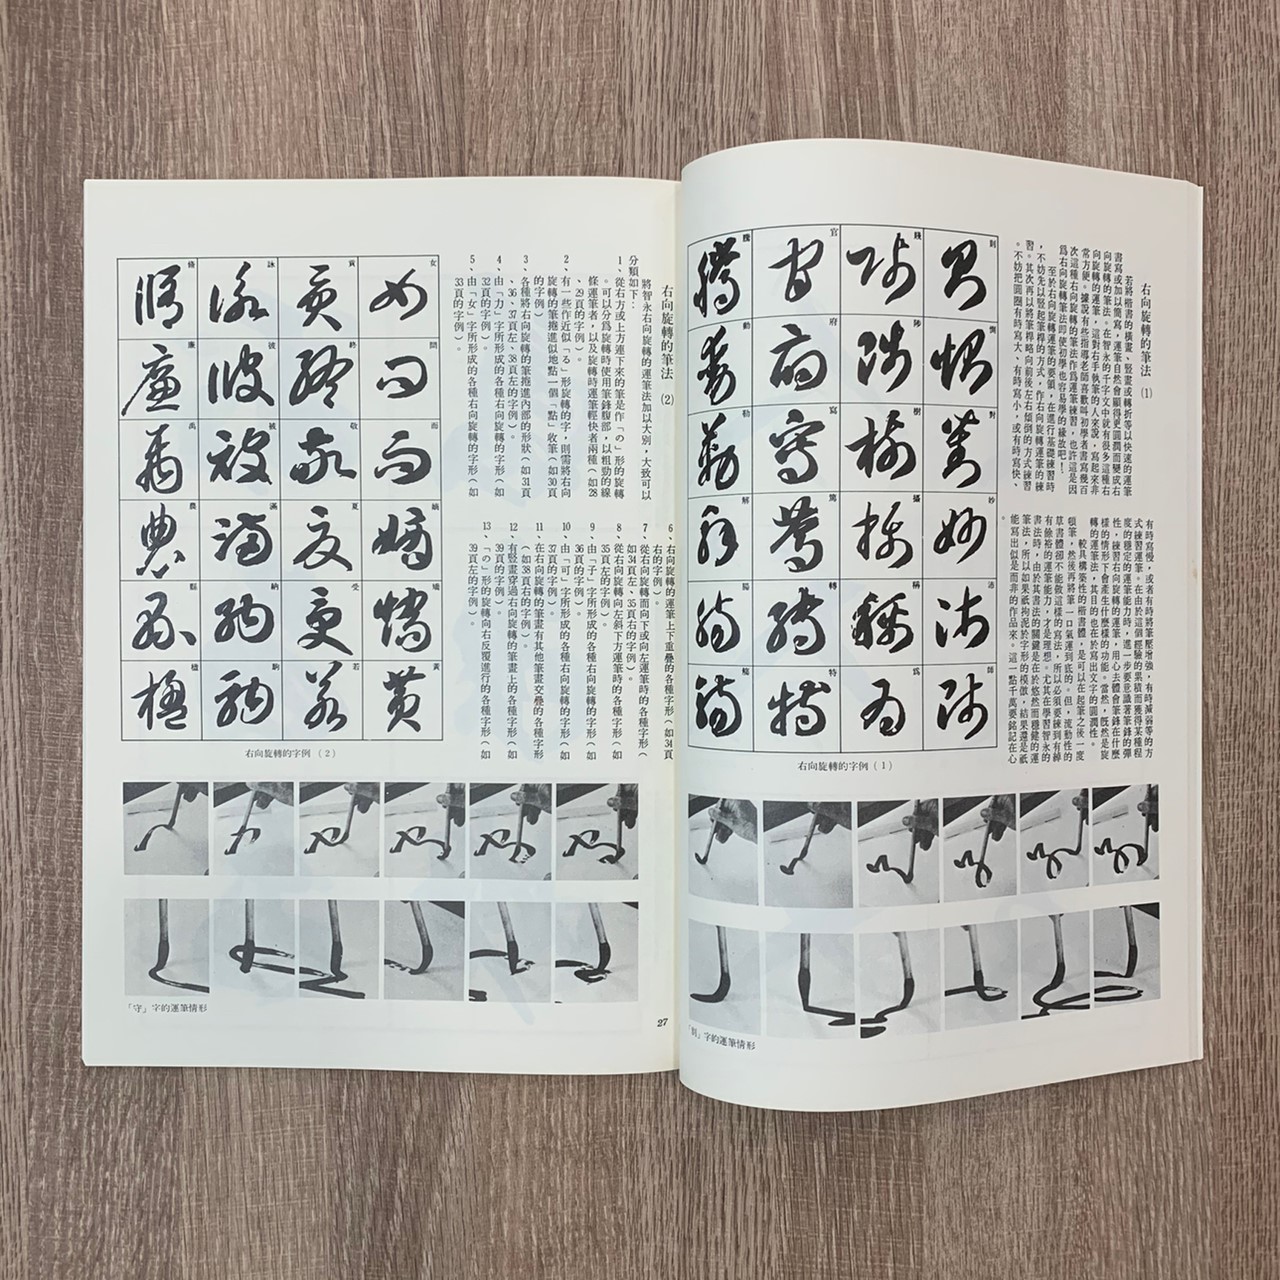 右向旋轉的筆法 (1)
若將楷書的橫畫、豎畫或轉折等以快速的運筆
書寫或加以簡寫,運筆自然會顯得更圓潤而變成右
向旋轉的筆法。在智永的千字文中就有很多這種右
向旋轉的運筆,這對右手執筆的人來說,寫起來非
常方便。據說有些指導老師喜歡叫初學者書寫幾百
次這種右向旋轉的筆法作為運筆練習,也許這是因
為右向旋轉筆法即使初學也容易學的緣故吧!
至於右向旋轉運筆的要領,在進行基礎練習時
,不妨先以豎起筆桿的方式,作右向旋轉運筆的練
習。其次再以將筆桿略向前後左右傾倒的方式練習
。不妨把圓圈有時寫大、有時寫小,或有時寫快、
有時寫慢,或者有時將筆壓增強,有時減弱等的方
式練習運筆。在由於這個經驗的累積而獲得某種程
度的穩定的運筆能力時,進一步要意識著筆鋒的彈
性,練習右向旋轉的運筆,用心去體會筆鋒在什麼
樣的情形下會產生什麼樣的功能。當然,既然是旋
轉的運筆法,其目的也在於寫出文字的圓潤性。
較具構築性的楷書體,是可以在起筆之後一度
頓筆,然後再將筆一口氣運到底的。但,流動性的
草書體卻不能做這樣的寫法,所以必須要練到有綽
有餘裕的運筆能力,才是理想。尤其在學習智永的
書法時,由於其書法的關鍵是在於悠然而穩健的運
筆法,所以如果祇拘泥於字形的模倣,結果還是祇
能寫出似是而非的作品來。這一點千萬要銘記在心
。
則 惻 對 妙 沛 師
賤 陟 樹 攝 稱 為
官 府 寫 篤 轉 特
騰 動 勒 解
右向旋轉的字例(1)
「則」字的運筆情形
右向旋轉的筆法 (2)
將智永右向旋轉的運筆法加以大別,大致可以
分類如下:
1、從右方或上方連下來的筆是作「の」形的旋轉
。可以分為旋轉時使用筆鋒腹部,以粗勁的線
條運筆者,以及旋轉時運筆輕快者兩種(如28
、29頁的字例)。
2、有一些作近似「る」形旋轉的字,則需將右向
旋轉的筆捲進似地點一個「點」收筆(如30頁
的字例)
3、各種將右向旋轉的筆捲進內部的形狀(如31頁
、36、37頁左、38頁左的字例)。
4、由「力」字所形成的各種右向旋轉的字形(如
32頁的字例)。
5、由「女」字所形成的各種右向旋轉的字形(如
33頁的字例)。
6、右向旋轉的運筆上下重疊的各種字形(如34頁
右的字例)。
7、從右向旋轉而向下或向左運筆時的各種字形(
如34頁左、35頁右的字例)。
8、從右向旋轉向左斜下方運筆時的各種字形(如
35頁左的字例)。
9、由「子」字所形成的各種右向旋轉的字形(如
36頁的字例)。
10、由「可」字所形成的各種右向旋轉的字形(如
37頁的字例)。
11、在右向旋轉的筆畫有其他筆畫交疊的各種字形
(如38頁右的字例)。
12、有豎畫穿過右向旋轉的筆畫上的各種字形(如
39頁右的字例)。
13、「の」形的旋轉向右反覆進行的各種字形(如
39頁左的字例)。
女 問 而 嫡 矯 黃
貢 終 敬 夏 受 若
詠 彼 被 滿 納 駒
脩 廉 禹 農 縣 楹
右向旋轉的字例(2)
「守」字的運筆情形
27